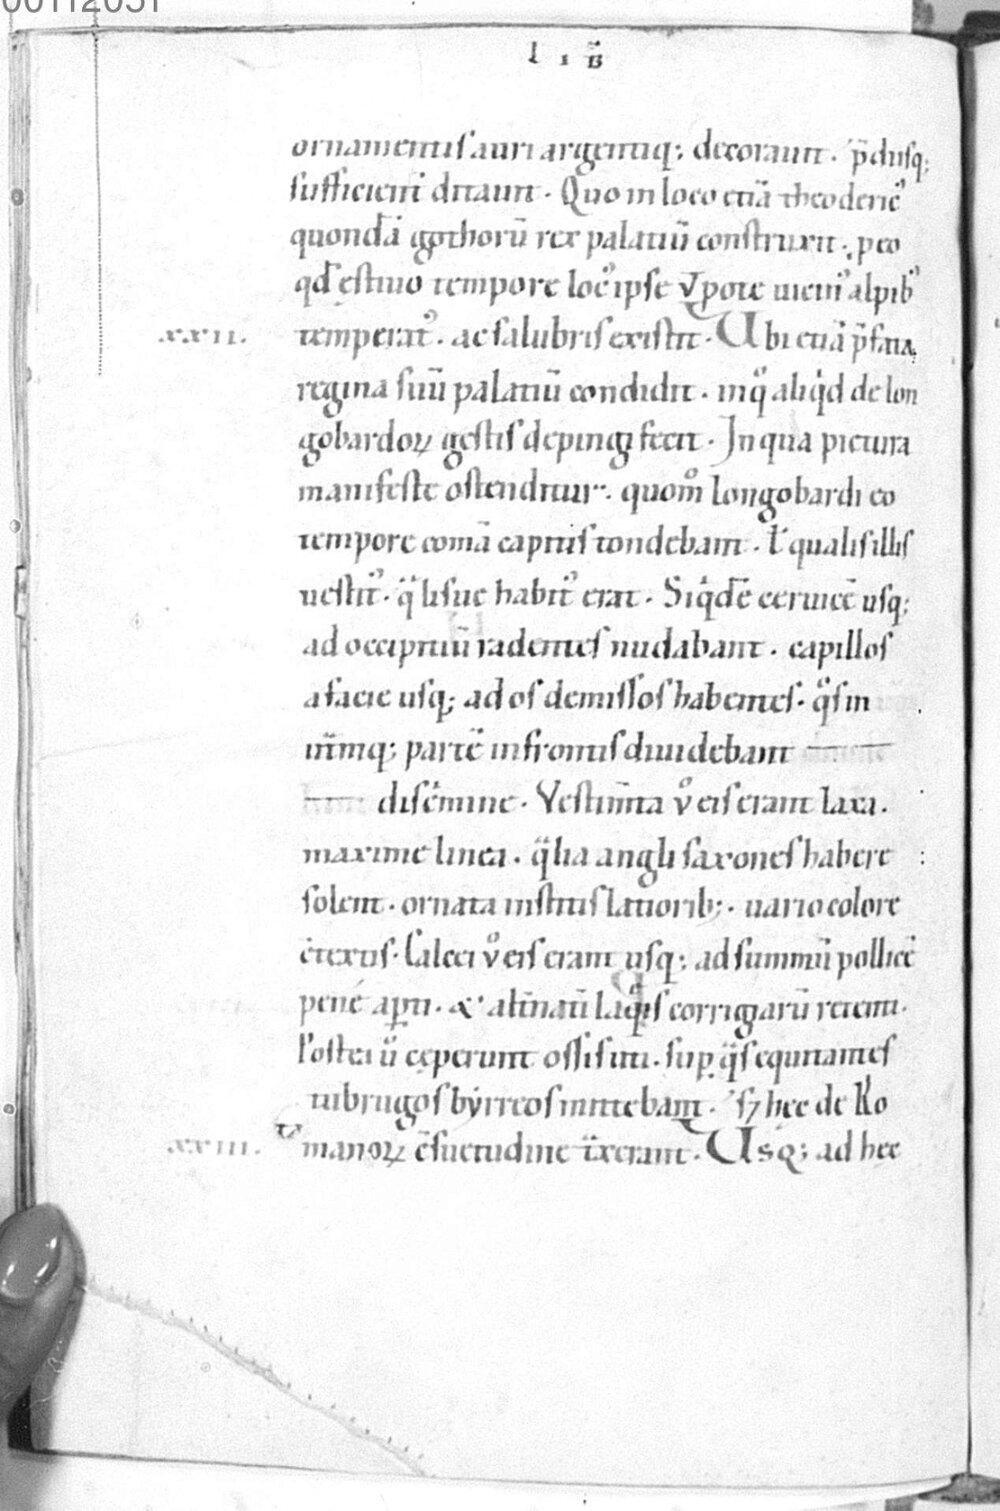 00112051
l ı B̄
ornamentis auri argentiq; decoraunt. p̄diisq;
sufficient̄ ditaunt. Quo in loco etiā theoderic᾿
quondā gothorū rex palatiū construxit. p eo
qđ ęstiuo tempore loc᾿ ipse vtpote uicin᾿ alpib᾿
.xxıı. temperat᾿. ac salubris existit. Ubi etiā p̄fata
regina suū palatiū condidit. inq̊ aliqͥd de lon
gobardoꝝ gestis depingi fecit. In qua pictura
manifeste ostenditur. quom̊ longobardi eo
tempore comā capitis tondebant. ł qualis illis
uestit᾿. qͣlisue habit᾿ erat. Siqͥdē ceruicē usq;
ad occipitiū radentes nudabant. capillos
a facie usq; ad os demissos habentes. q̊s in
ut̄mq; partē in frontis diuidebant
discͥmine. Vestim̄ta v̊ eis erant laxa.
maxime linea. qͣlia angli saxones habere
solent. ornata institis latiorib;. uario colore
c̄textis. Calcei v̊ eis erant usq; ad summū pollicē
pene apti. & alt̄natī laqͥis corrigiarū retenti.
Postei ů cęperunt ossis uti. sup qͣs equitantes
tubrugos byrreos mittebant. s; hęc de Ro
.xxııı. manoꝝ c̄suetudine tͣxerant. Usq; ad hęc